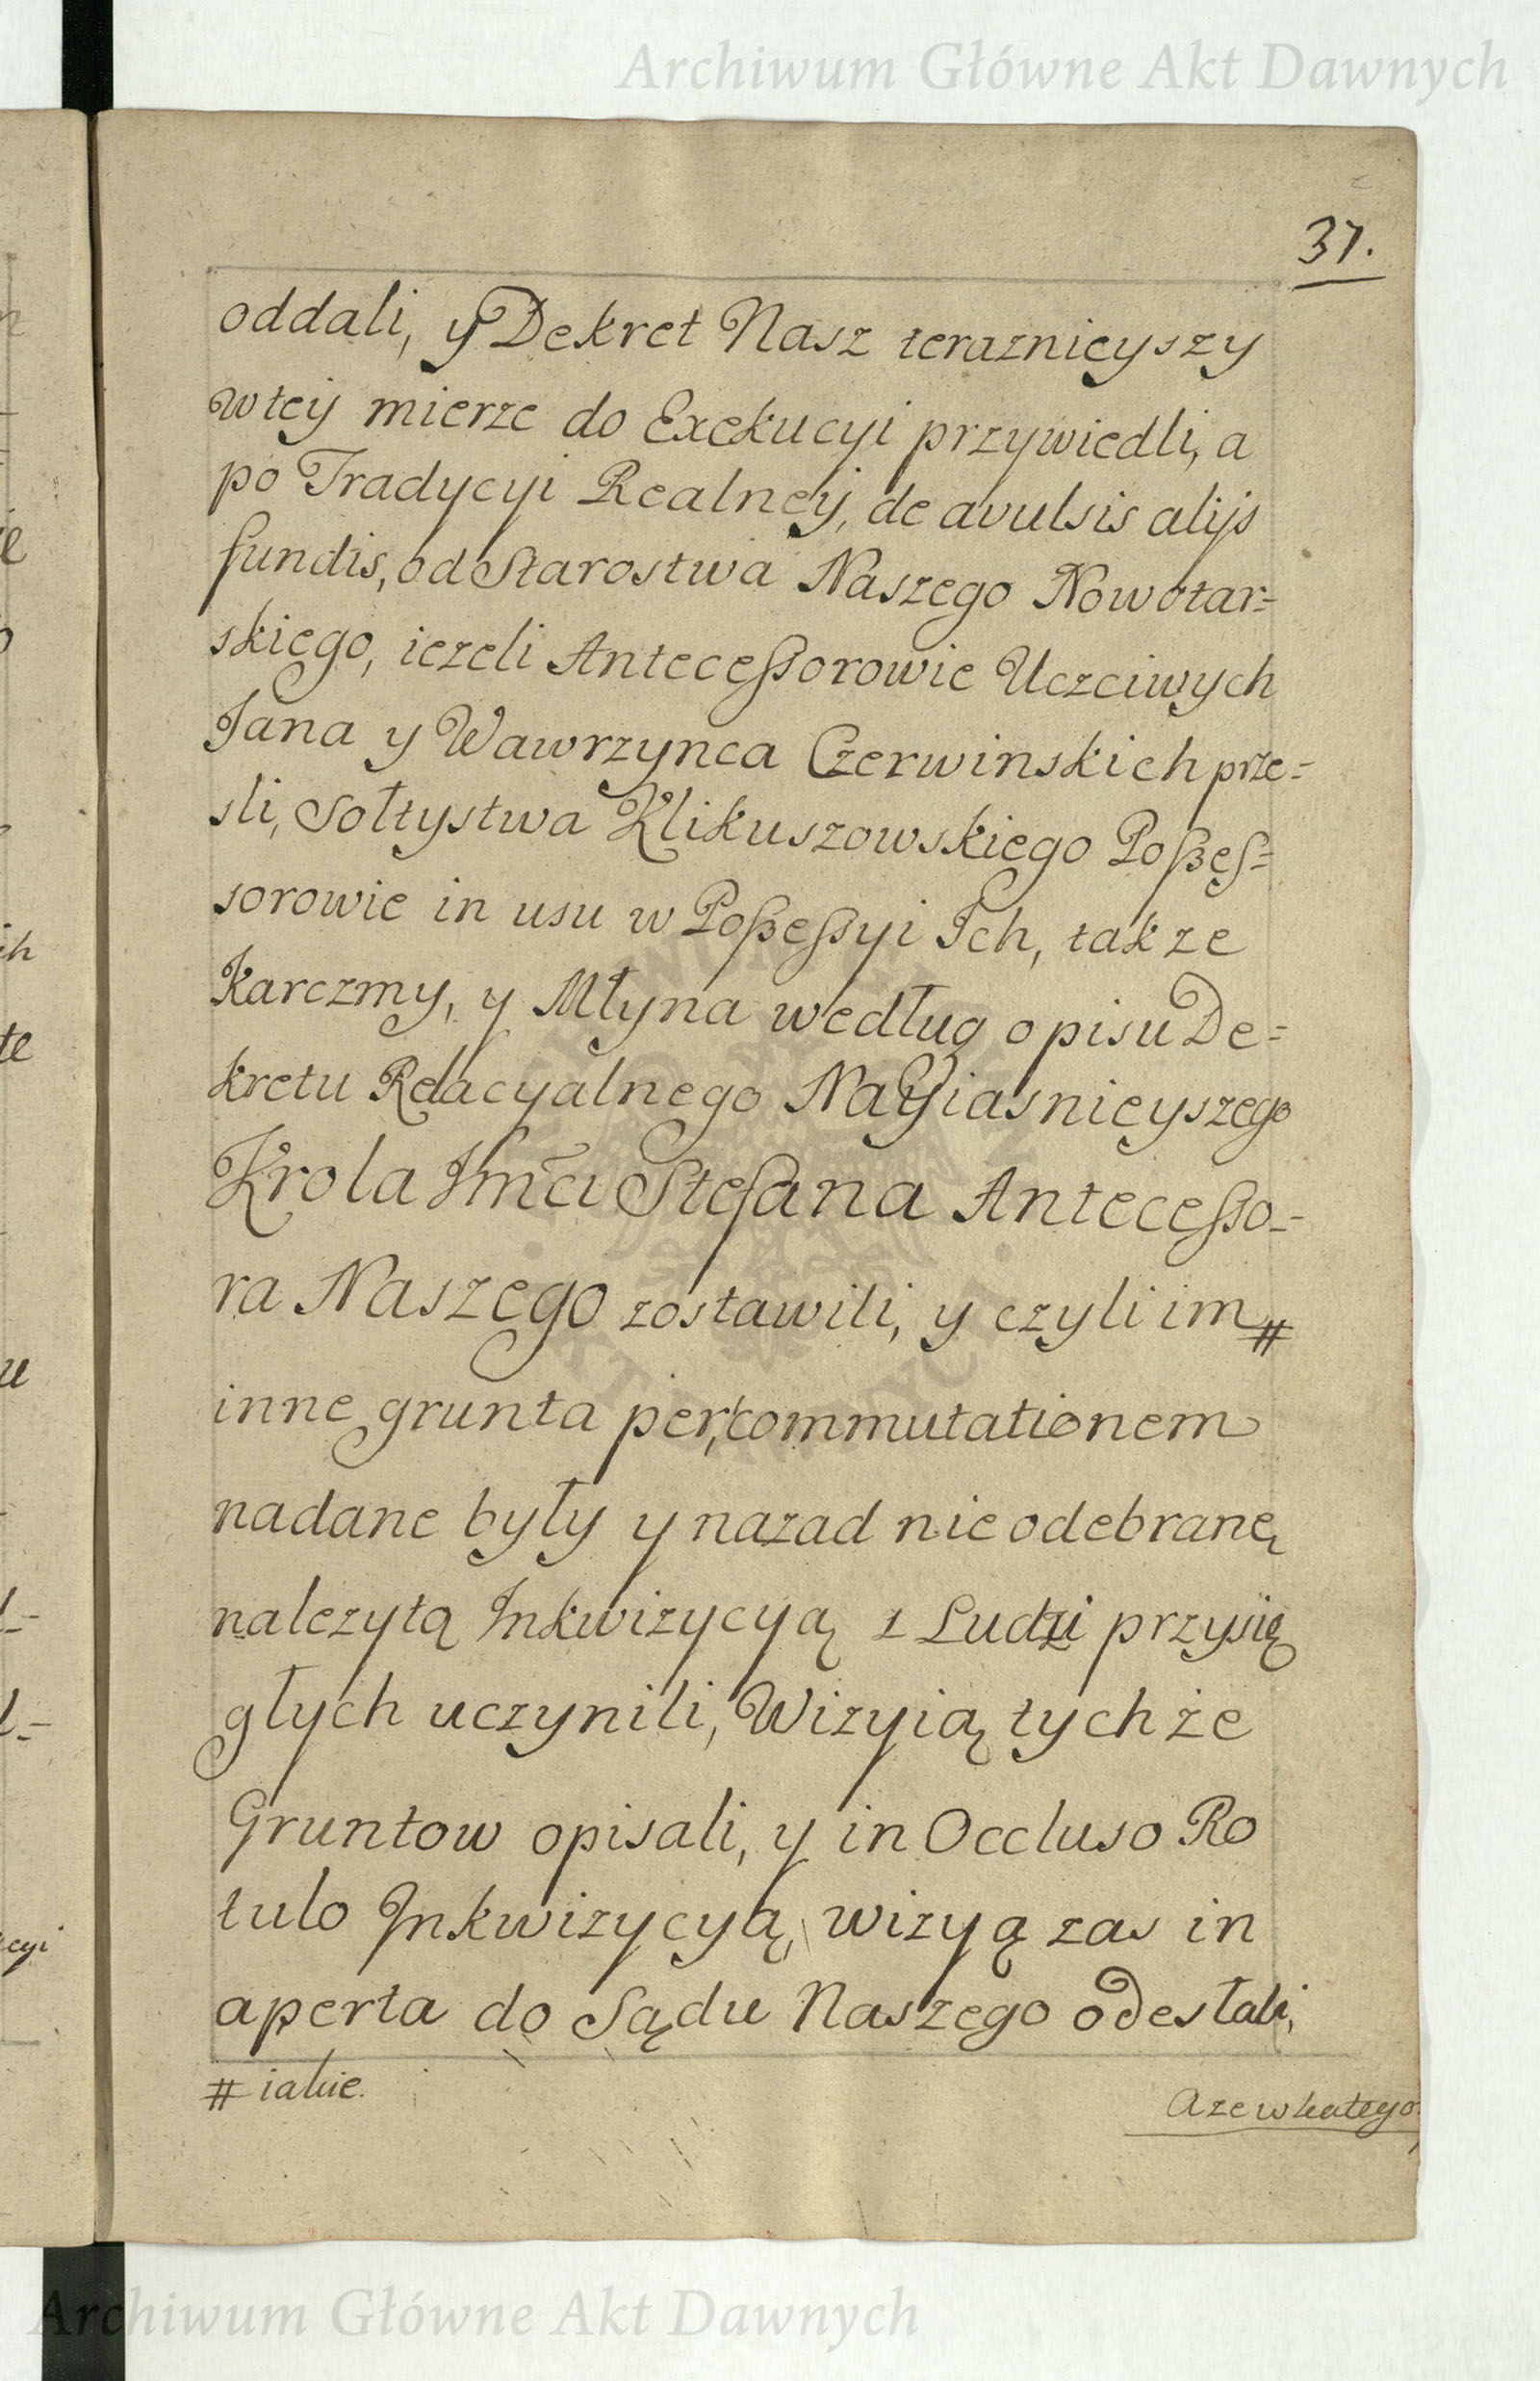 Archiwum Główne Akt Dawnych
37.
oddali, y Dekret Nasz teraznieyszy
w tey mierze do Exekucyi przywiedli, a
po Tradycyi Realney, de avulsis alijs
fundis, od Starostwa Naszego Nowotar=
skiego, iezeli Antecessorowie Uczciwych
Jana y Wawrzynca Czerwinskich prze=
sli, Sołtystwa Klikuszowskiego Posses=
sorowie in usu w Possessyi Ich, takze
Karczmy, y Młyna według opisu De=
kretu Relacyalnego Nayiasnieyszego
Krola Jmci Stefana Antecesso=
ra Naszego zostawili, y czyli im #
inne grunta per commutationem
nadane były y nazad nie odebrane,
nalezytą Inkwizycyą z Ludzi przysię
głych uczynili, Wizyią tychże
Gruntow opisali, y in Occluso Ro
tulo Inkwizycyą, wizyą zas in
aperta do Sądu Naszego odesłali,
# iakie.
a ze wkatego
Archiwum Główne Akt Dawnych